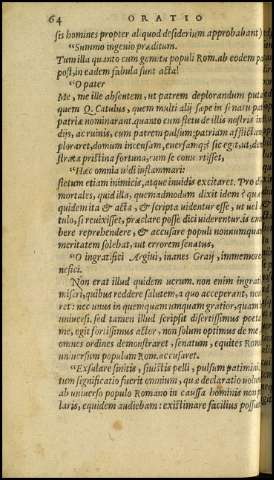 64 ORATIO
sis homines propter aliquod desiderium approbabant)
"Summo ingenio præditum.
Tum illa quanto cum gemitu populi Rom. ab eodem pa
post, in eadem fabula sunt acta?
"O pater
Me, me ille absentem, ut patrem deplorandum puta
quem Q. Catulus, quem multi alij sæpe in senatu patr
patriæ nominarant. quanto cum fletu de illis nostris in
dijs, ac ruinis, cum patrem pulsum, patriam afflictam
ploraret, domum incensam, euersamque? sic egit, ut, de
strata pristina fortuna, cum se conuertisset,
"Hæc omnia uidi inflammari:
fletum etiam inimicis, atque inuidis excitaret. Pro di
mortales, quid illa, quemadmodum dixit idem? qua
quidem ita & acta, & scripta uidentur esse, ut uel
tulo, si reuixisset, præclare posse dici uiderentur. is eni
bere reprehendere, & accusare populi nonnumquam
meritatem solebat, ut errorem senatus,
"O ingratifici Argiui, inanes Graij, immemores
nefici.
Non erat illud quidem uerum. non enim ingrati
miseri, quibus reddere salutem, a quo acceperant, non
ret: nec unus in quemquam umquam gratior, quam
uniuersi. sed tamen illud scripsit disertissimus poeta
me, egit fortissimus actor, non solum optimus de me
omnes ordines demonstraret, senatum, equites Rom
uniuersum populum Rom. accusaret.
"Exsulare sinitis, siuistis pelli, pulsum patimini.
tum significatio fuerit omnium, quæ declaratio uolun
ab uniuerso populo Romano in caussa hominis non p
laris, equidem audiebam: existimare facilius possun